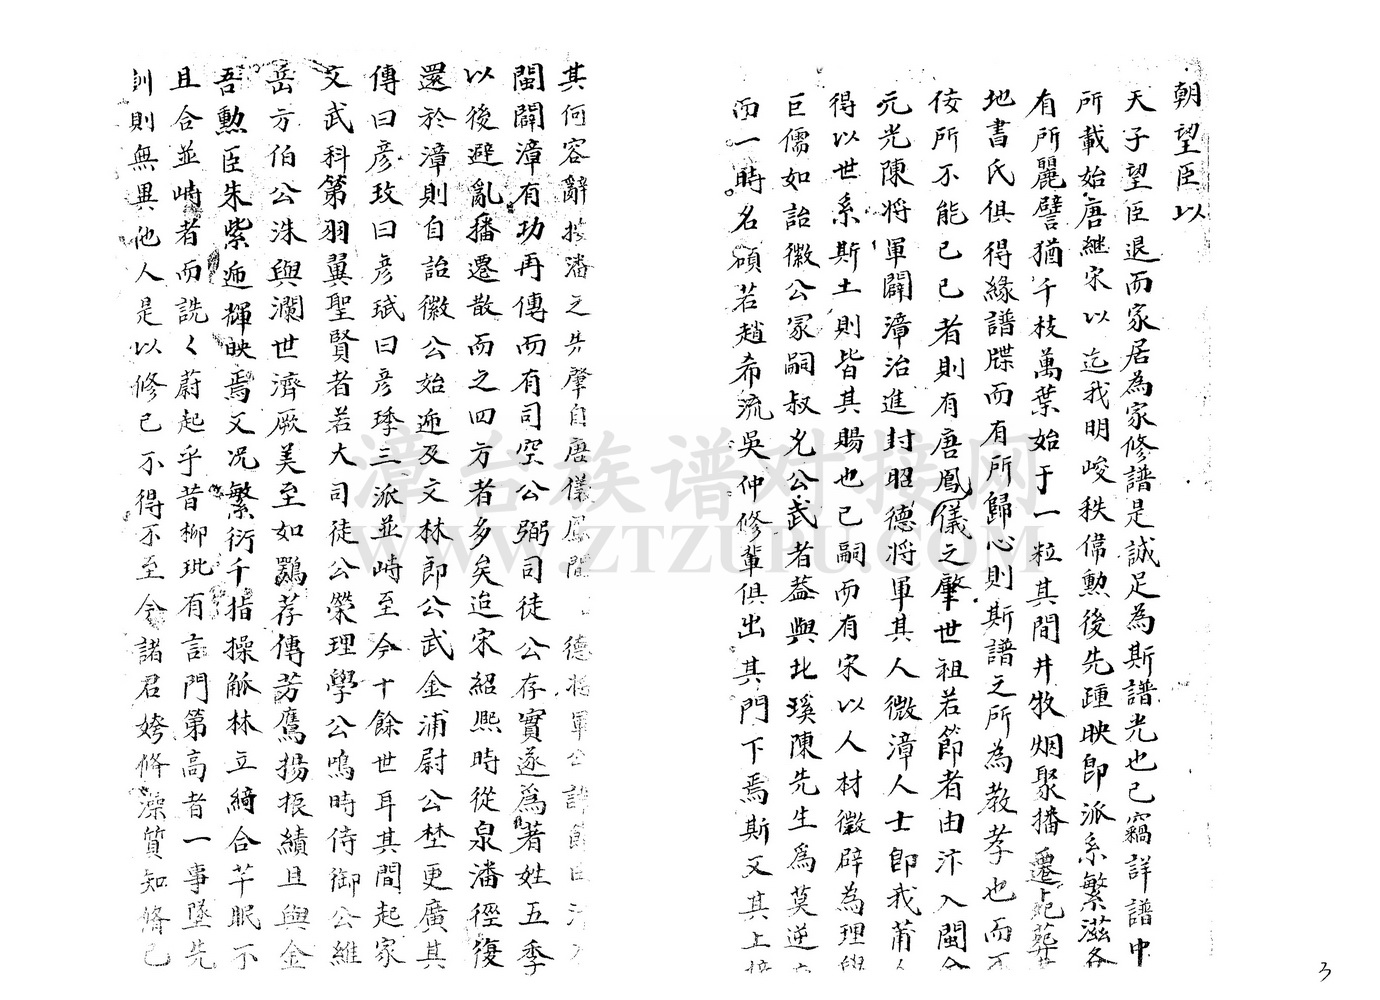 朝望臣以
天子望臣退而家居為家修譜是誠足為斯譜光也已竊詳譜中
所載始唐継宋以迄我明峻秩偉勲後先踵映即派系繁滋各
有所麗譬猶千枝萬葉始于一粒其間井牧烟聚播遷
地書氏俱得緣譜牒而有所歸心則斯譜之所為教孝也而不
侫所不能已已者則有唐鳳儀之肇世祖若節者由汴入閩
元光陳將軍闢漳治進封昭德將軍其人微漳人士即我莆人
得以世系斯土則皆其賜也已嗣而有宋以人材徵辟為理學
巨儒如詒徽公冢嗣叔允公武者葢與北溪陳先生為莫逆
而一時名碩若趙希流吳仲修輩俱出其門下焉斯又其上
其何容辭按潘之先肇自唐儀鳳間 德將軍公諱節由
閩闢漳有功再傳而有司空公弼司徒公存實遂為著姓五季
以後避亂播遷散而之四方者多矣迨宋紹熙時從泉潘徑復
還於漳則自詒徽公始逓及文林郎公武金浦尉公埜更廣其
傳曰彦玫曰彦珷曰彦琒三派並峙至今十餘世耳其間起家
文武科第羽翼聖賢者若大司徒公榮理學公鳴時侍御公維
岳方伯公洙與瀾世濟厥美至如鶚荐傳芳鷹揚振績且與金
吾勲臣朱紫逓輝映焉又况繁衍千指操觚林立綺合芊眠不
且合並峙者而詵々蔚起乎昔柳玭有言門第高者一事墜先
訓則無異他人是以修己不得不至今諸君姱脩澡質知脩己
漳台族谱对接网
WWW.ZTZUPU.COM
3